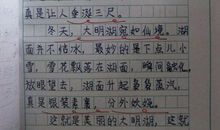 真是让人垂涎三尺。
冬天，大明湖宛如仙境。湖
面并不结冰，最妙的是下点儿小
雪，雪花飘落在湖面，瞬间融化，
放眼望去，湖面升起袅袅蒸汽，
真是银装素裹，分外妖娆。
这就是美丽的大明湖，这就